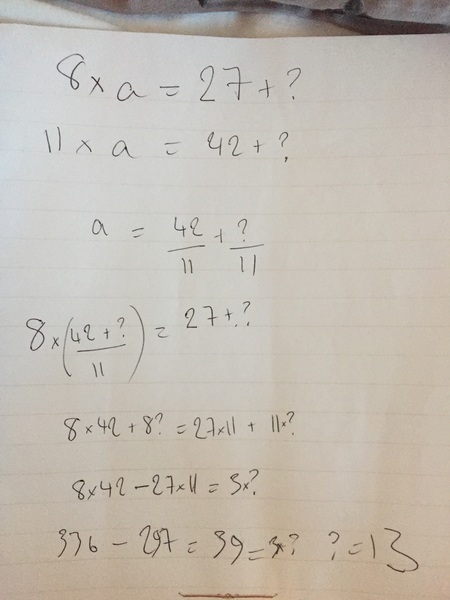 8 × a = 27 + ?
11 × a = 42 + ?
a = 42/11 + ?/11
8 × (42 + ?/11) = 27 + ?
8 × 42 + 8? = 27×11 + 11×?
8×42 − 27×11 = 3×?
336 − 297 = 39 = 3×? ? = 13